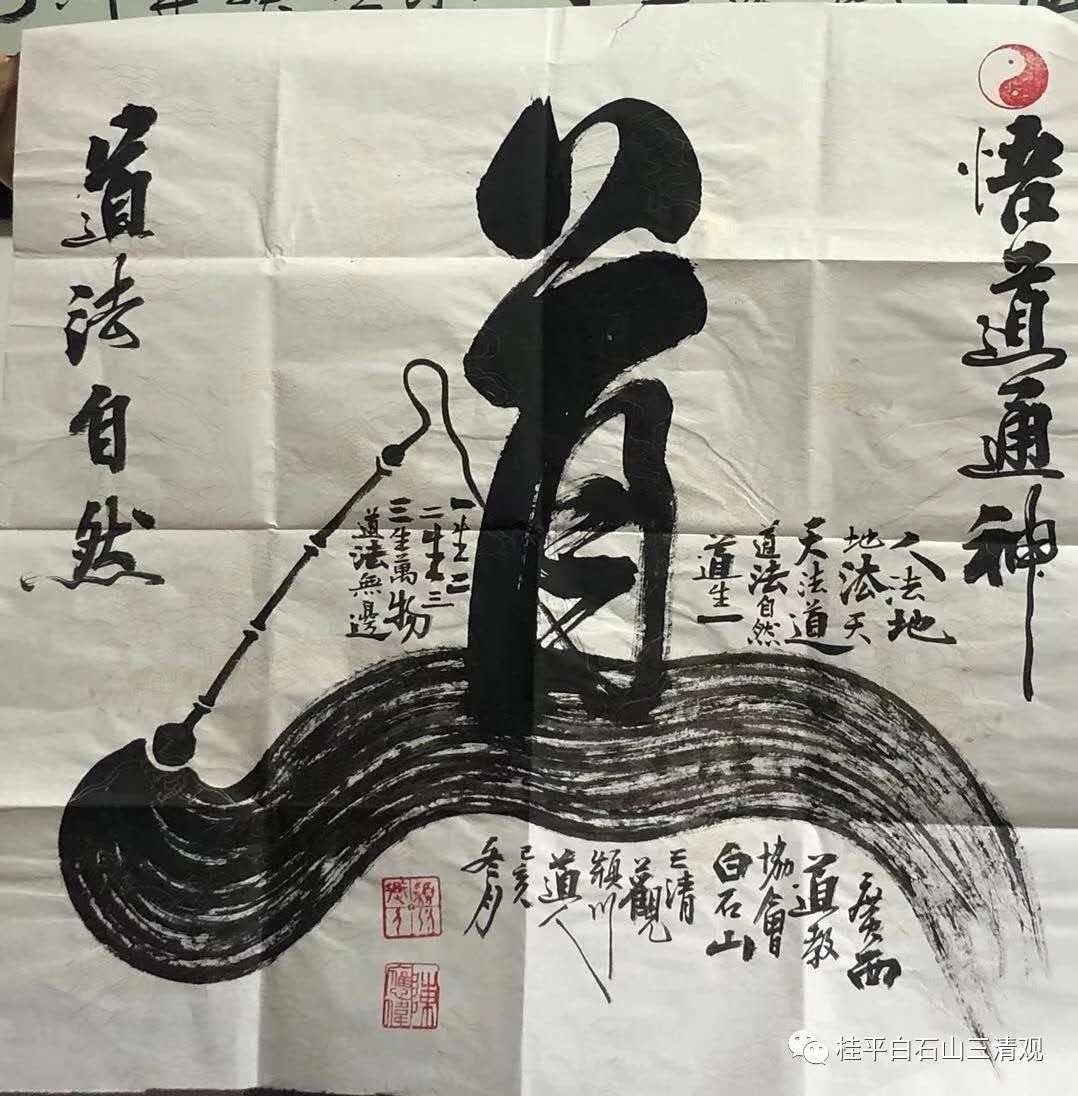 悟道通神
道
道法自然
人法地
地法天
天法道
道法自然
道生一
一生二
二生三
三生萬物
道法無邊
廣西
道教
協會
白石山
三清
觀
潁川
道人
己亥
冬月
桂平白石山三清观